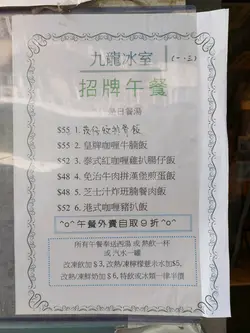 九龍冰室
(一.三)
招牌午餐
是日餐湯
$55 1.
$55 2. 皇牌咖喱牛腩飯
$52 3. 泰式紅咖喱雞扒腸仔飯
$48 4. 免治牛肉拼漢堡煎蛋飯
$48 5. 芝士汁炸斑腩餐肉飯
$52 6. 港式咖喱豬扒飯
^o^午餐外賣自取9折^o^
所有午餐奉送西湯 或 熱飲一杯
或 汽水一罐
改凍飲加$3, 改熱/凍檸檬薏米水加$5,
改熱/凍鮮奶加$6, 特飲或冰類一律半價